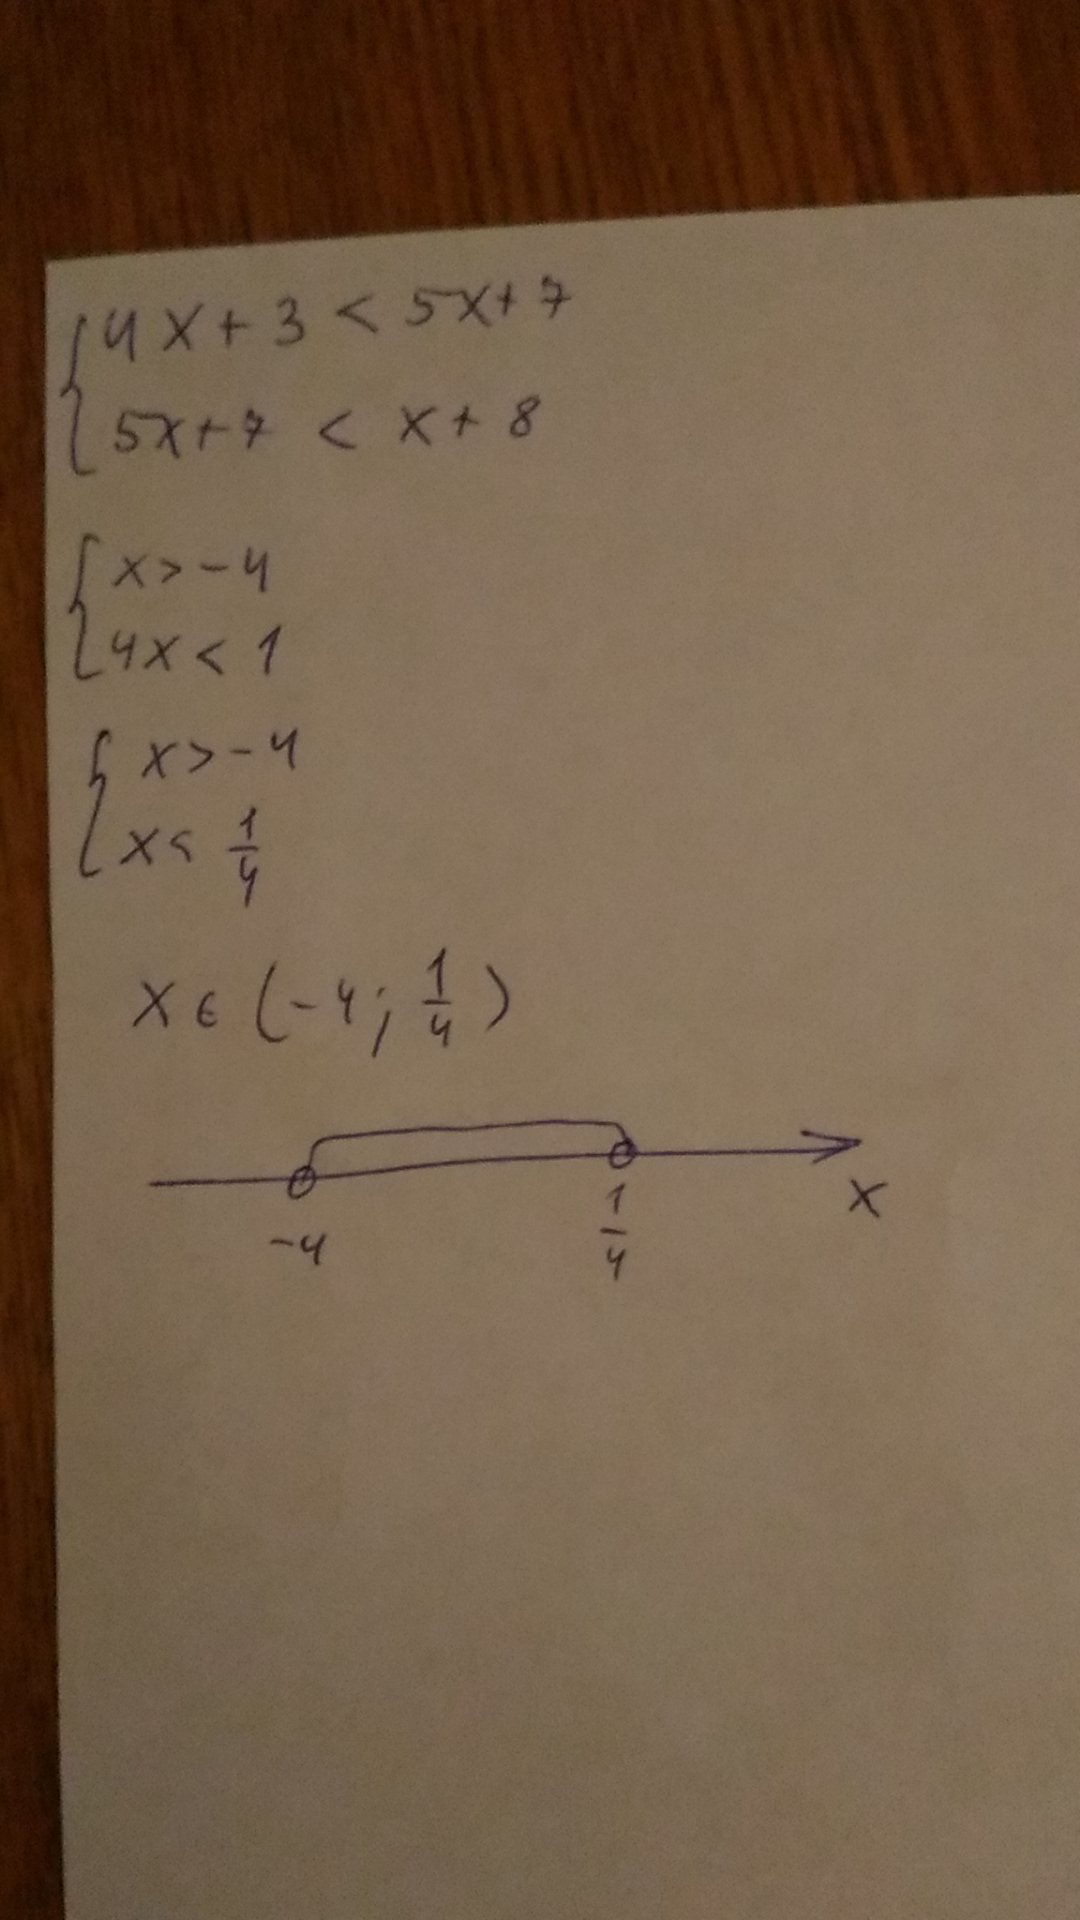 4x + 3 < 5x + 7
5x + 7 < x + 8
x > -4
4x < 1
x > -4
x < 1/4
x ∈ (-4; 1/4)
-4 1/4 x